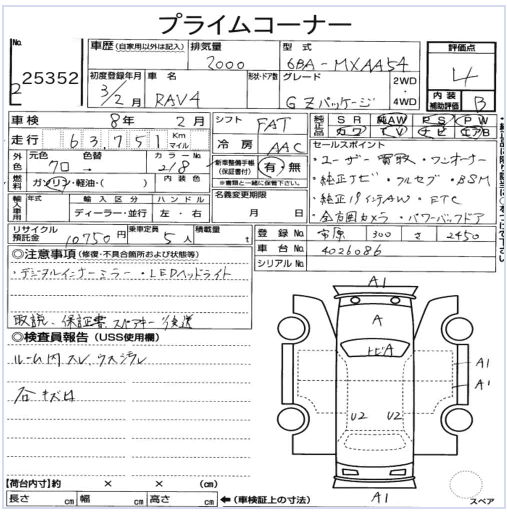 プライムコーナー
No. 25352
車歴 (自家用以外は記入) 排気量 2000 型式 6BA-MXAA54 評価点 4
初度登録年月 3/2月 車名 RAV4 形状・ドア数 グレード GZパッケージ 2WD・4WD 内装補助評価 B
車検 8年2月 シフト FAT 純正品 SR 純AW PS PW カワ TV ナビ エアB
走行 63,751 Km マイル 冷房 AAC セールスポイント
外色 元色 色替 カラーNo. 70→ 218 新車整備手帳(保証書付) 有・無 ・ユーザー買取・ワンオーナー
燃料 ガソリン・軽油・( ) 内装色 ※書類と一緒に保管下さい。 ・純正ナビ・フルセグ・BSM
輸入車用 年式 輸入区分 ハンドル 名義変更期限 ・純正18インチAW・ETC
ディーラー・並行 左・右 月 日 ・全方囲カメラ・パワーバックドア
リサイクル預託金 10750円 乗車定員 5人 積載量 t 登録No. 市原 300 さ 2450
◎注意事項 (修復・不具合箇所および状態等) 車台No. 4026086
・デジタルインナーミラー・LEDヘッドライト シリアルNo.
取説、保証書 スペアキー 後送
◎検査員報告 (USS使用欄)
ルーム内スレ、ウス汚レ
各キズ
A1
A
トビA
A1
A1
U2 U2
A1
スペア
【荷台内寸】約 × × (cm)
長さ cm 幅 cm 高さ cm ← (車検証上の寸法)